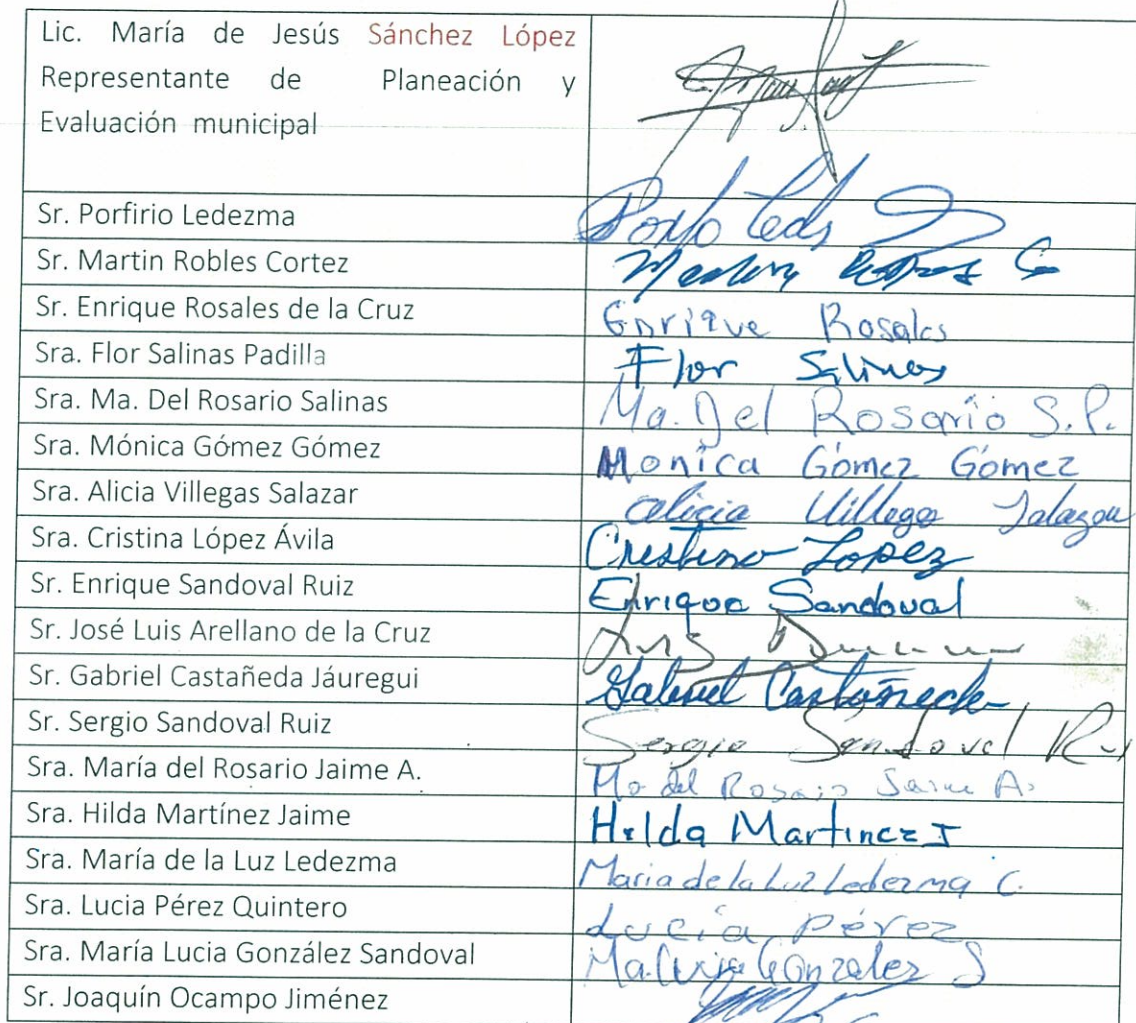 Lic. María de Jesús Sánchez López
Representante de Planeación y
Evaluación municipal
Sr. Porfirio Ledezma
Sr. Martin Robles Cortez
Sr. Enrique Rosales de la Cruz Enrique Rosales
Sra. Flor Salinas Padilla Flor Salinas
Sra. Ma. Del Rosario Salinas Ma. Del Rosario S.P.
Sra. Mónica Gómez Gómez Monica Gómez Gómez
Sra. Alicia Villegas Salazar alicia Villegas Salazar
Sra. Cristina López Ávila Cristina Lopez
Sr. Enrique Sandoval Ruiz Enrique Sandoval
Sr. José Luis Arellano de la Cruz Luis
Sr. Gabriel Castañeda Jáuregui Gabriel Castañeda
Sr. Sergio Sandoval Ruiz Sergio Sandoval
Sra. María del Rosario Jaime A. Ma del Rosario Jaime A.
Sra. Hilda Martínez Jaime Hilda Martinez J
Sra. María de la Luz Ledezma Maria de la Luz Ledezma C.
Sra. Lucia Pérez Quintero Lucía Pérez
Sra. María Lucia González Sandoval Ma. Lucia Gonzalez S
Sr. Joaquín Ocampo Jiménez